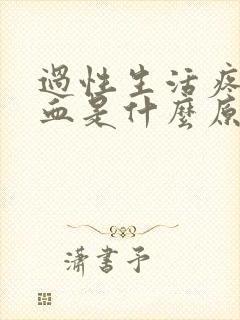 過性生活疼
血是什麼原
瀟書予